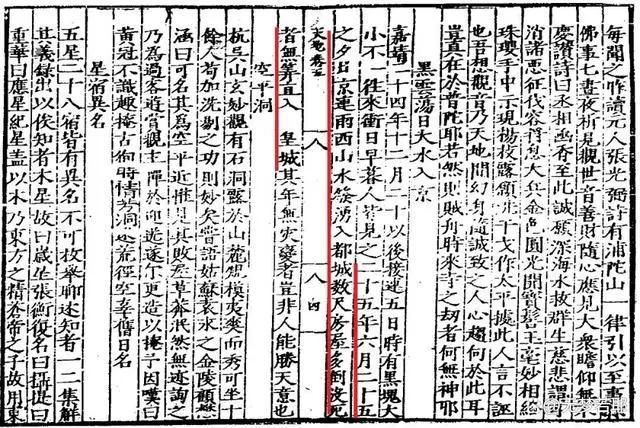 每聞之昨讀元人張光弼詩有浦陀山一律引以至事
佛事七晝夜祈見觀世音善財隨心應見大衆瞻仰無
慶讚詩曰丞相函香至此誠願深海水救群生慈悲謂
消諸惡征伐容將息大兵金色圓光開寶髻玉毫妙相綰
珠瓔手中示現楊枝露願洒干戈作太平據此人言不誣
也吾想觀音乃天地間幻身隨誠致之人心趨向於此耳
豈直在於普陀耶若然則賊舟時來寺之刼者何無神耶
黑雲蕩日大水入京
嘉靖二十四年十二月二十以後接連五日時有黑塊大
小不往來衝日早暮人皆見之二十五年六月二十五
之夕北京連雨西山水發湧入都城數尺房屋多倒沒死
天地卷五 八 八 四
者無筭直入皇城其年無灾憂者豈非人能勝天意也
空平洞
杭吳山玄妙觀有石洞露於山麓規模夷爽而秀可坐十
餘人苟加洗剔之功則妙矣嘗語姑蘇袁氷之金陵顧懋
涵曰可名其爲空平近惟見其敗屋草莽泯然無迹詢之
乃爲過客遊賞觀主殫於迎送遂尔更造以掩予因嘆曰
黃冠不識趣掩古徇時情芳洞迷荒徑空牽舊日名
星宿異名
五星二十八宿皆有異名不可枚舉聊述知者一二集解
其義錄出以俟知者木星故曰歲坐張衡復名曰攝提曰
重華曰應星紀星蓋以木乃東方之精蒼帝之子故用東